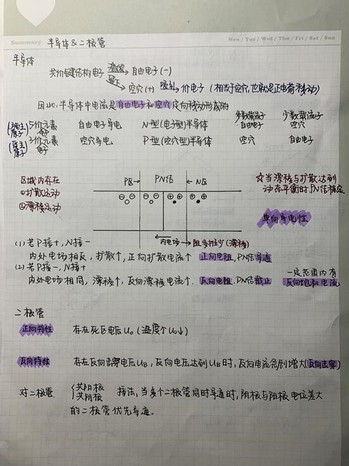 半导体 & 二极管
半导体
共价键结构电子 自由电子 (-)
空穴 (+) 价电子
因此, 半导体中电流是自由电子和空穴定向移动形成的
多数载流子 少数载流子
5价元素 自由电子导电 N-型(电子型)半导体 自由电子 空穴
3价元素 空穴导电 P-型(空穴型)半导体 空穴 自由电子
区域内存在
①扩散运动
②漂移运动
P区 PN结 N区
☆当漂移与扩散达到
动态平衡时PN结稳定
内电场 阻多推少(漂移)
单向导电性
(1) 若P接+, N接-
内外电场相反, 扩散↑, 正向扩散电流↑ 正向电阻, PN结导通
(2) 若P接-, N接+
内外电场相同, 漂移↑, 反向漂移电流↑ 反向电阻, PN结截止
一定范围内有
反向饱和电流
二极管
正向特性 存在死区电压U₀ (温度↑ U₀↓)
反向特性 存在反向击穿电压UB, 反向电压达到UB时, 反向电流急剧增大(反向击穿)
对二极管 共阳极 共阴极 接法, 当多个二极管同时导通时, 阳极与阴极电位差大
的二极管优先导通.